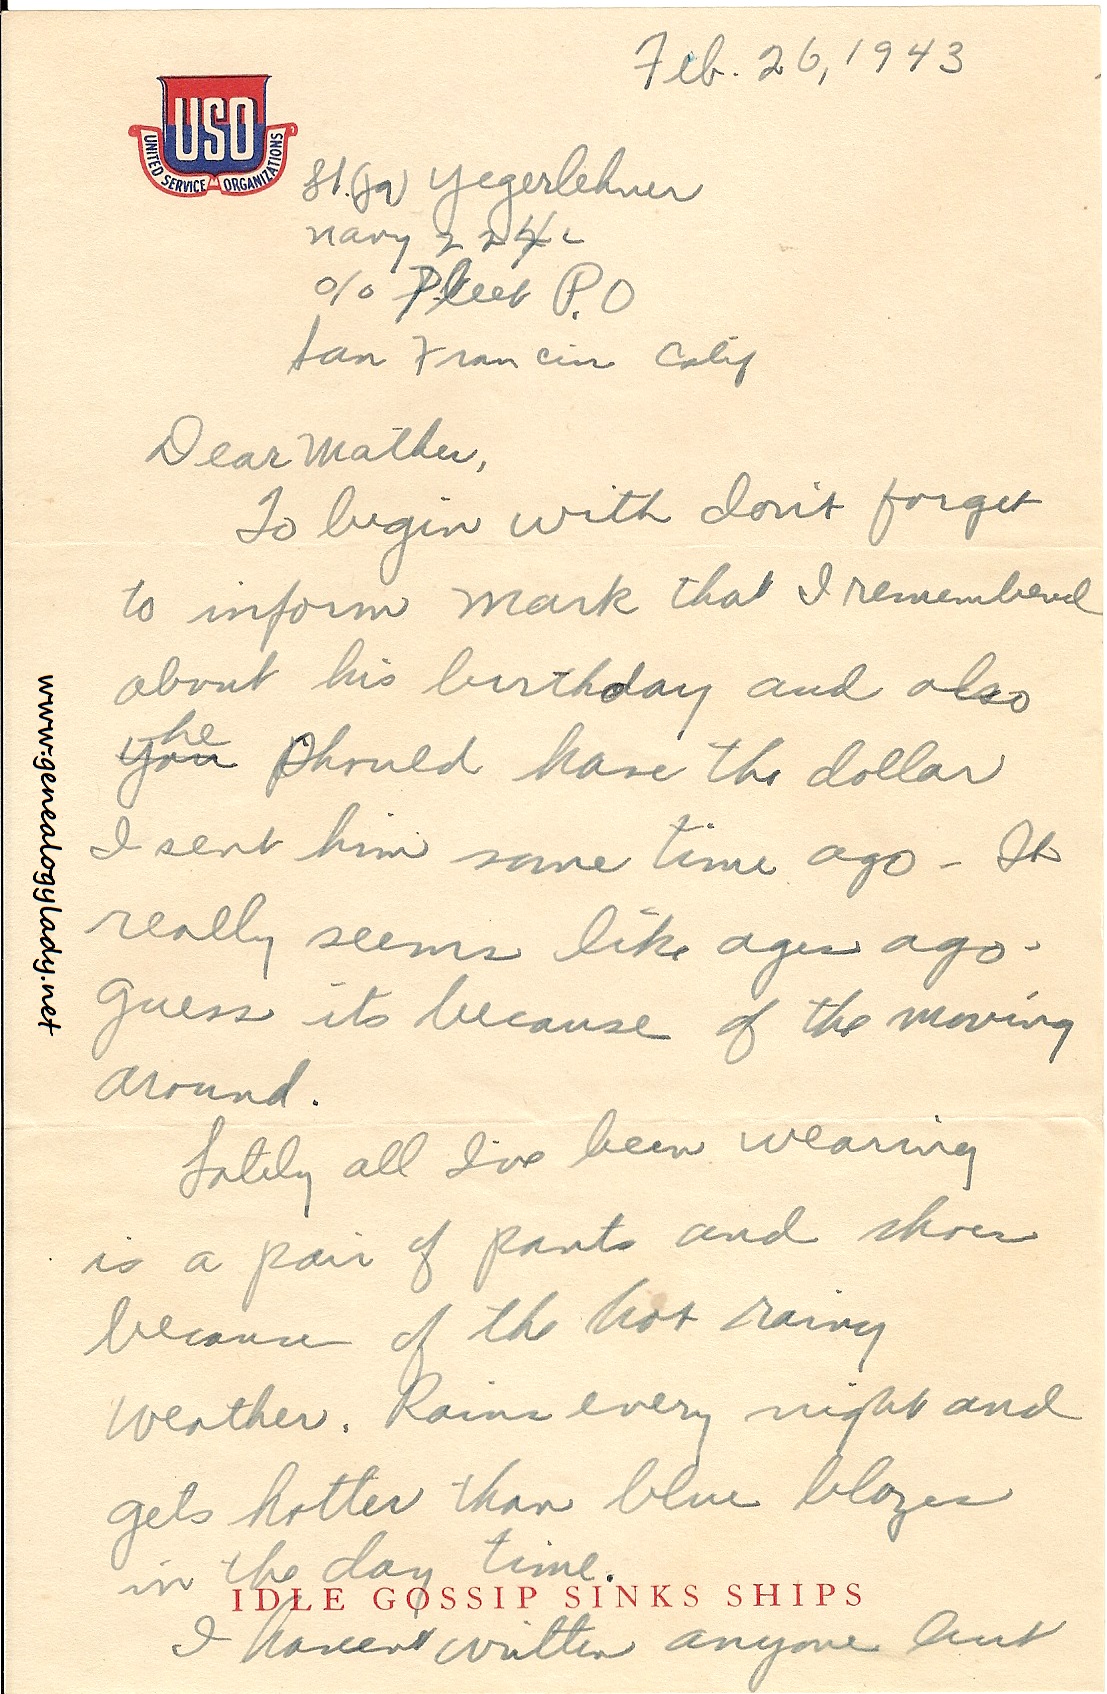 Feb. 26, 1943
USO
UNITED SERVICE ORGANIZATIONS
Lt. (jg) Yegerlehner
Navy
c/o Fleet P.O
San Francisco Calif
Dear Mother,
To begin with don't forget
to inform Mark that I remembered
about his birthday and also
he
you should have the dollar
I sent him some time ago - It
really seems like ages ago -
Guess its because of the moving
around.
Lately all I've been wearing
is a pair of pants and shoes
because of the hot rainy
weather. Rains every night and
gets hotter than blue blazes
in the day time.
IDLE GOSSIP SINKS SHIPS
I haven't written anyone but
www.genealogylady.net